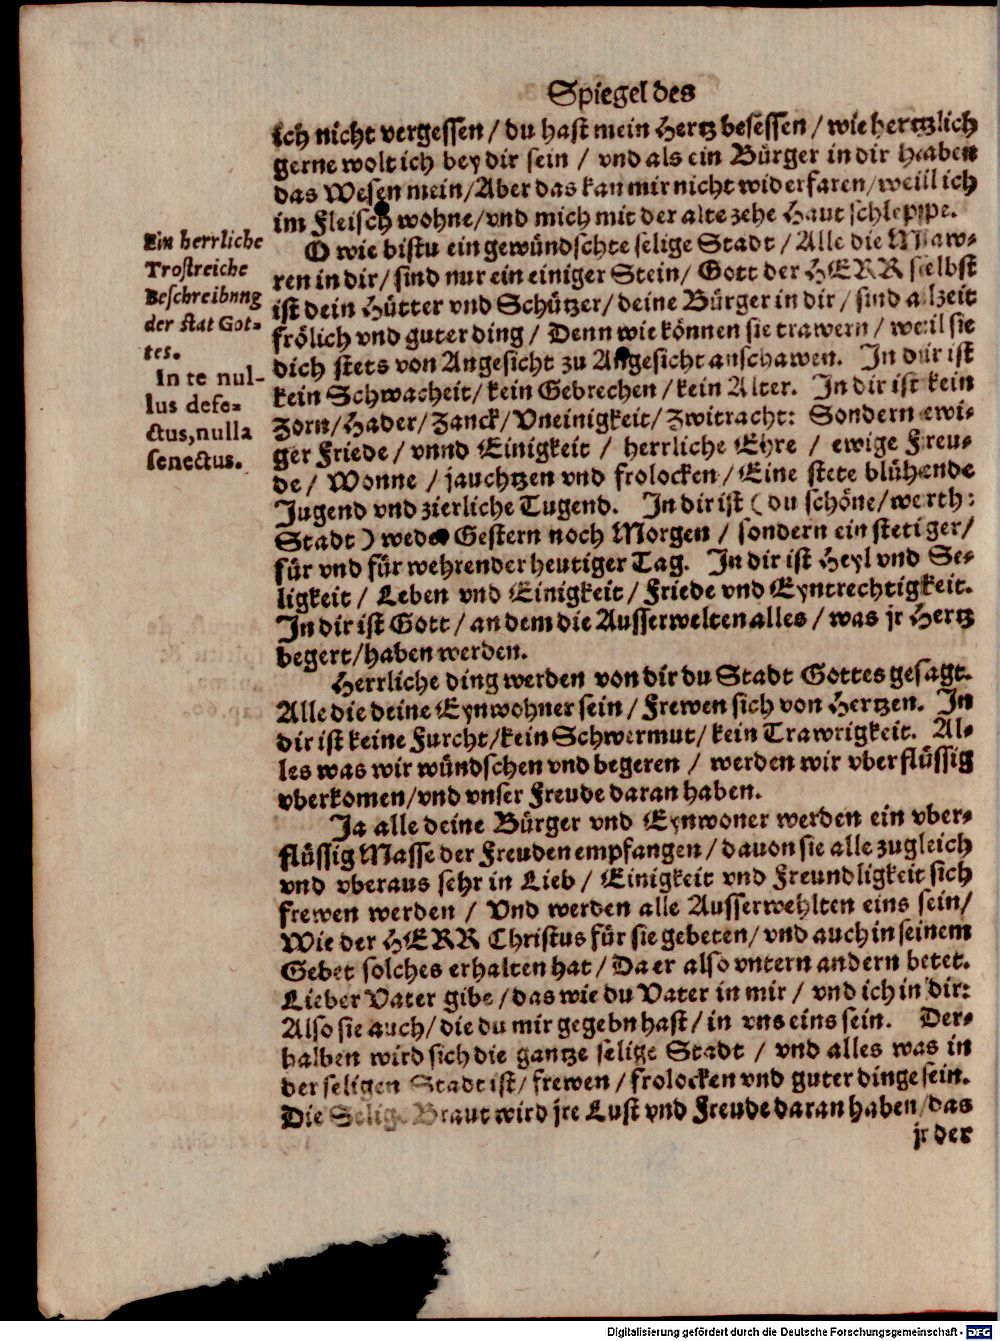 Spiegel des
ich nicht vergessen / du hast mein Hertz besessen / wie hertzlich
gerne wolt ich bey dir sein / vnd als ein Bürger in dir haben
das Wesen mein/Aber das kan mir nicht widerfaren/weill ich
im Fleisch wohne/vnd mich mit der alte zehe Haut schleppe.
Ein herrliche
Trostreiche
Beschreibung
der stat Got-
tes.
In te nul-
lus defe-
ctus, nulla
senectus.
O wie bistu ein gewündschte selige Stadt / Alle die Maw-
ren in dir/ sind nur ein einiger Stein/ Gott der HERR selbst
ist dein Hütter vnd Schützer/ deine Bürger in dir / sind alzeit
frölich vnd guter ding / Denn wie können sie trawern / weil sie
dich stets von Angesicht zu Angesicht anschawen. In dir ist
kein Schwacheit/ kein Gebrechen / kein Alter. In dir ist kein
Zorn/Hader/Zanck/Vneinigkeit/Zwitracht: Sondern ewi-
ger Friede/ vnnd Einigkeit / herrliche Ehre / ewige Freu-
de/ Wonne / jauchtzen vnd frolocken/ Eine stete blühende
Jugend vnd zierliche Tugend. In dir ist ( du schöne/werthe
Stadt ) weder Gestern noch Morgen / sondern ein stetiger/
für vnd für wehrender heutiger Tag. In dir ist Heyl vnd Se-
ligkeit / Leben vnd Einigkeit / Friede vnd Eyntrechtigkeit.
In dir ist Gott / an dem die Ausserwelten alles / was jr Hertz
begert/haben werden.
Herrliche ding werden von dir du Stadt Gottes gesagt.
Alle die deine Eynwohner sein / Frewen sich von Hertzen. In
dir ist keine Furcht/kein Schwermut/ kein Trawrigkeit. Al-
les was wir wündschen vnd begeren / werden wir vberflüssig
vberkomen/vnd vnser Freude daran haben.
Ja alle deine Bürger vnd Eynwoner werden ein vber-
flüssig Masse der Freuden empfangen / dauon sie alle zugleich
vnd vberaus sehr in Lieb / Einigkeit vnd Freundligkeit sich
frewen werden / Vnd werden alle Ausserwehlten eins sein/
Wie der HERR Christus für sie gebeten/ vnd auch in seinem
Gebet solches erhalten hat / Da er also vntern andern betet.
Lieber Vater gibe / das wie du Vater in mir / vnd ich in dir:
Also sie auch/ die du mir gegebn hast / in vns eins sein. Der-
halben wird sich die gantze selige Stadt / vnd alles was in
der seligen Stadt ist/ frewen / frolocken vnd guter dinge sein.
Die Selige Braut wird jre Lust vnd Freude daran haben/das
jr der
Digitalisierung gefördert durch die Deutsche Forschungsgemeinschaft - DFG